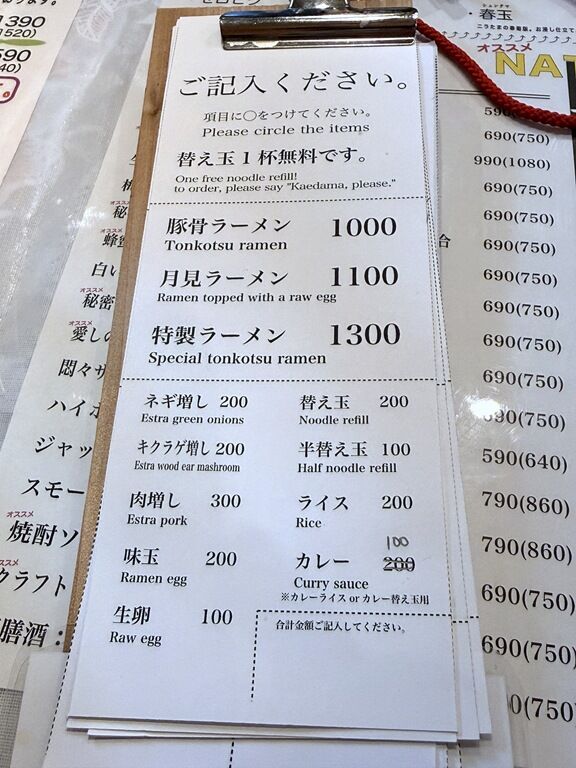 ご記入ください。
項目に◯をつけてください。
Please circle the items
替え玉1杯無料です。
One free noodle refill!
to order, please say "Kaedama, please."
豚骨ラーメン 1000
Tonkotsu ramen
月見ラーメン 1100
Ramen topped with a raw egg
特製ラーメン 1300
Special tonkotsu ramen
ネギ増し 200
Estra green onions
キクラゲ増し 200
Estra wood ear mashroom
肉増し 300
Estra pork
味玉 200
Ramen egg
生卵 100
Raw egg
替え玉 200
Noodle refill
半替え玉 100
Half noodle refill
ライス 200
Rice
100
カレー 200
Curry sauce
※カレーライス or カレー替え玉用
合計金額ご記入してください。
1390
1520)
590
40)
オススメ
秘
蜂
白い
オススメ
秘密
オススメ
愛し
悶々サ
ハイボ
ジャッ
スモー
オススメ
焼酎ソ
オススメ
クラフト
膳酒：
・春玉
オススメ
NAT
590
690(750)
990(1080)
690(750)
690(750)
台 690(750)
690(750)
690(750)
690(750)
690(750)
690(750)
590(640)
790(860)
790(860)
690(750)
690(750)
0(750)